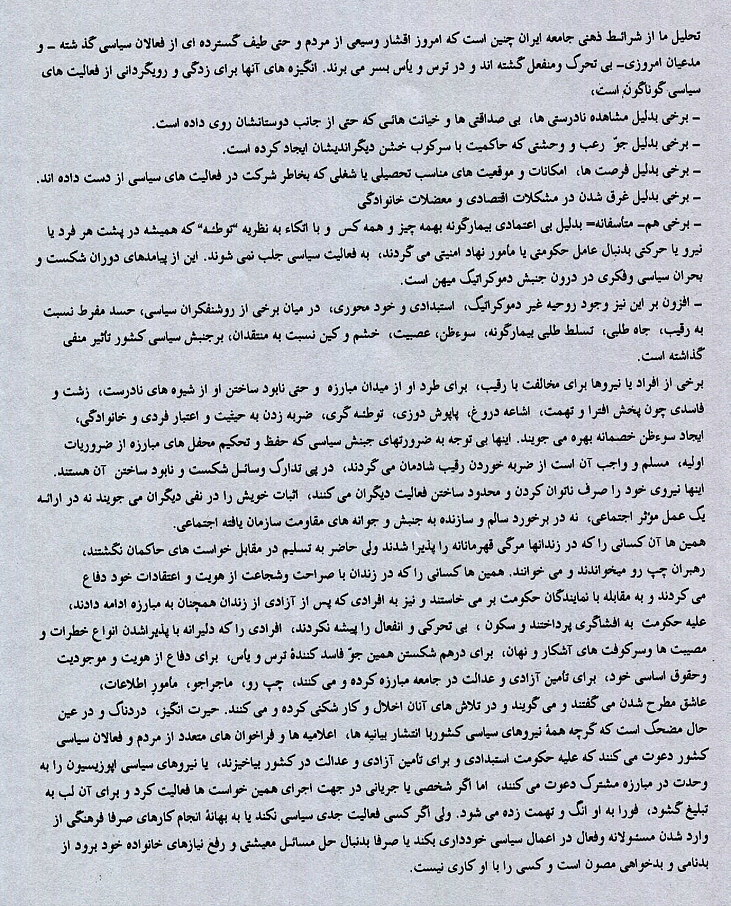 تحلیل ما از شرائط ذهنی جامعه ایران چنین است که امروز اقشار وسیعی از مردم و حتی طیف گسترده ای از فعالان سیاسی گذشته – و
مدعیان امروزی– بی تحرک ومنفعل گشته اند و در ترس و یاس بسر می برند. انگیزه های آنها برای زدگی و رویگردانی از فعالیت های
سیاسی گوناگون است،
– برخی بدلیل مشاهده نادرستی ها، بی صداقتی ها و خیانت هائی که حتی از جانب دوستانشان روی داده است.
– برخی بدلیل جوّ رعب و وحشتی که حاکمیت با سرکوب خشن دیگراندیشان ایجاد کرده است.
– برخی بدلیل فرصت ها، امکانات و موقعیت های مناسب تحصیلی یا شغلی که بخاطر شرکت در فعالیت های سیاسی از دست داده اند.
– برخی بدلیل غرق شدن در مشکلات اقتصادی و معضلات خانوادگی
– برخی هم– متأسفانه= بدلیل بی اعتمادی بیمارگونه بهمه چیز و همه کس و با اتکاء به نظریه "توطئه" که همیشه در پشت هر فرد یا
نیرو یا حرکتی بدنبال عامل حکومتی یا مأمور نهاد امنیتی می گردند، به فعالیت سیاسی جلب نمی شوند. این از پیامدهای دوران شکست و
بحران سیاسی وفکری در درون جنبش دموکراتیک میهن است.
– افزون بر این نیز وجود روحیه غیر دموکراتیک، استبدادی و خود محوری، در میان برخی از روشنفکران سیاسی، حسد مفرط نسبت
به رقیب، جاه طلبی، تسلط طلبی بیمارگونه، سوءظن، عصبیت، خشم و کین نسبت به منتقدان، برجنبش سیاسی کشور تأثیر منفی
گذاشته است.
برخی از افراد یا نیروها برای مخالفت با رقیب، برای طرد او از میدان مبارزه و حتی نابود ساختن او از شیوه های نادرست، زشت و
فاسدی چون پخش افترا و تهمت، اشاعه دروغ، پاپوش دوزی، توطئه گری، ضربه زدن به حیثیت و اعتبار فردی و خانوادگی،
ایجاد سوءظن خصمانه بهره می جویند. اینها بی توجه به ضرورتهای جبنش سیاسی که حفظ و تحکیم محفل های مبارزه از ضروریات
اولیه، مسلم و واجب آن است از ضربه خوردن رقیب شادمان می گردند، در پی تدارک وسائل شکست و نابود ساختن آن هستند.
اینها نیروی خود را صرف ناتوان کردن و محدود ساختن فعالیت دیگران می کنند، اثبات خویش را در نفی دیگران می جویند نه در ارائه
یک عمل مؤثر اجتماعی، نه در برخورد سالم و سازنده به جنبش و جوانه های مقاومت سازمان یافته اجتماعی.
همین ها آن کسانی را که در زندانها مرگی قهرمانانه را پذیرا شدند ولی حاضر به تسلیم در مقابل خواست های حاکمان نگشتند،
رهبران چپ رو میخواندند و می خوانند. همین ها کسانی را که در زندان با صراحت وشجاعت از هویت و اعتقادات خود دفاع
می کردند و به مقابله با نمایندگان حکومت بر می خاستند و نیز به افرادی که پس از آزادی از زندان همچنان به مبارزه ادامه دادند،
علیه حکومت به افشاگری پرداختند و سکون ، بی تحرکی و انفعال را پیشه نکردند، افرادی را که دلیرانه با پذیراشدن انواع خطرات و
مصیبت ها وسرکوفت های آشکار و نهان، برای درهم شکستن همین جوّ فاسد کنندۀ ترس و یاس، برای دفاع از هویت و موجودیت
وحقوق اساسی خود، برای تأمین آزادی و عدالت در جامعه مبارزه کرده و می کنند، چپ رو، ماجراجو، مأمور اطلاعات،
عاشق مطرح شدن می گفتند و می گویند و در تلاش های آنان اخلال و کار شکنی کرده و می کنند. حیرت انگیز، دردناک و در عین
حال مضحک است که گرچه همۀ نیروهای سیاسی کشوربا انتشار بیانیه ها، اعلامیه ها و فراخوان های متعدد از مردم و فعالان سیاسی
کشور دعوت می کنند که علیه حکومت استبدادی و برای تأمین آزادی و عدالت در کشور بپاخیزند، یا نیروهای سیاسی اپوزیسیون را به
وحدت در مبارزه مشترک دعوت می کنند، اما اگر شخصی یا جریانی در جهت اجرای همین خواست ها فعالیت کرد و برای آن لب به
تبلیغ گشود، فورا به او انگ و تهمت زده می شود. ولی اگر کسی فعالیت جدی سیاسی نکند یا به بهانۀ انجام کارهای صرفا فرهنگی از
وارد شدن مسئولانه وفعال در اعمال سیاسی خودداری بکند یا صرفا بدنبال حل مسائل معیشتی و رفع نیازهای خانواده خود برود از
بدنامی و بدخواهی مصون است و کسی را با او کاری نیست.